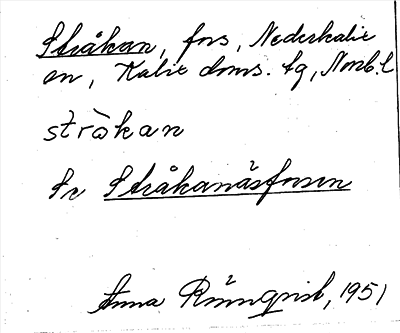 Stråkan, fors, Nederkalix
en, Kalix doms. tg, Norrb. l
stråkan
Se Stråkanäsforsen
Anna Rönnqvist, 1951